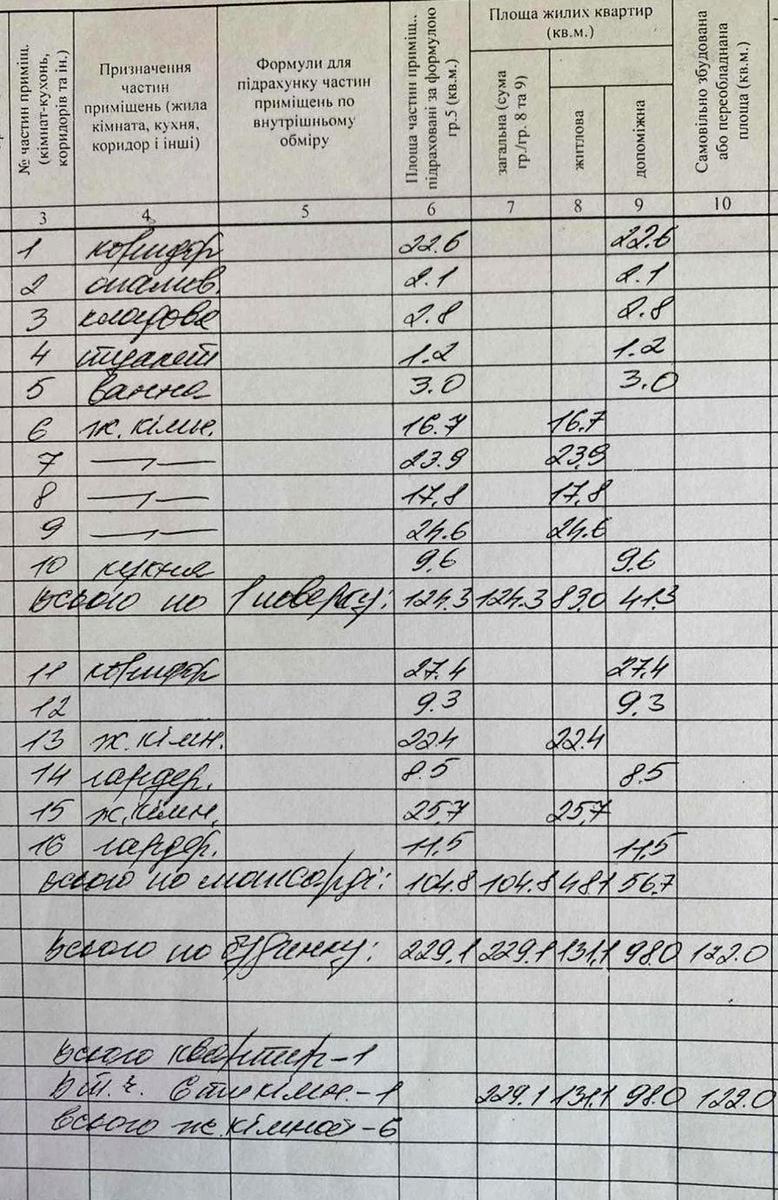 № частин приміщ. (кімнат-кухонь, коридорів та ін.)
Призначення частин приміщень (жила кімната, кухня, коридор і інші)
Формули для підрахунку частин приміщень по внутрішньому обміру
Площа частин приміщ.. підраховані за формулою гр.5 (кв.м.)
Площа жилих квартир (кв.м.)
загальна (сума гр./гр. 8 та 9)
житлова
допоміжна
Самовільно збудована або переобладнана площа (кв.м.)
3 4 5 6 7 8 9 10
1 коридор 22.6 22.6
2 опалюв. 2.1 2.1
3 кладова 2.8 2.8
4 туалет 1.2 1.2
5 ванна 3.0 3.0
6 ж. кімн. 16.7 16.7
7 —〃— 23.9 23.9
8 —〃— 17,8 17,8
9 —〃— 24.6 24.6
10 кухня 9,6 9,6
Всього по 1 поверху: 124.3 124.3 83.0 41.3
11 коридор 27.4 27.4
12 9.3 9.3
13 ж. кімн. 22.4 22.4
14 гардер. 8.5 8.5
15 ж. кімн. 25,7 25,7
16 гардер. 11,5 11,5
всього по мансарді: 104.8 104.8 48.1 56.7
Всього по будинку: 229.1 229.1 131,1 98.0 122.0
Всього квартир-1
в т.ч. 6тикімн.-1 229.1 131,1 98.0 122.0
всього ж. кімнат-6